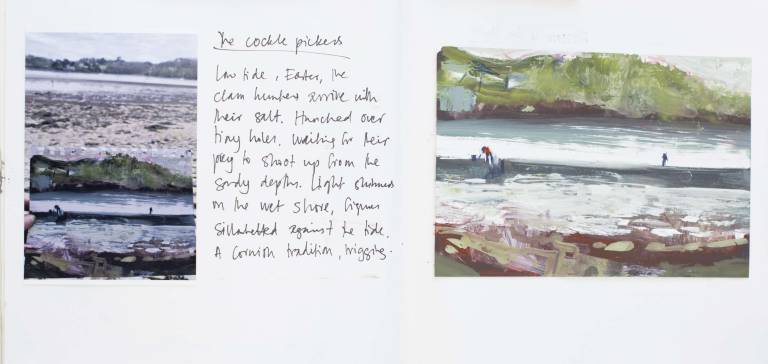 The cockle pickers
Low tide, Easter, the
clam hunters arrive with
their salt. Hunched over
tiny holes. Waiting for their
prey to shoot up from the
sandy depths. Light
on the wet shore, figures
sillahetted against the tide.
A Cornish tradition, trigging.